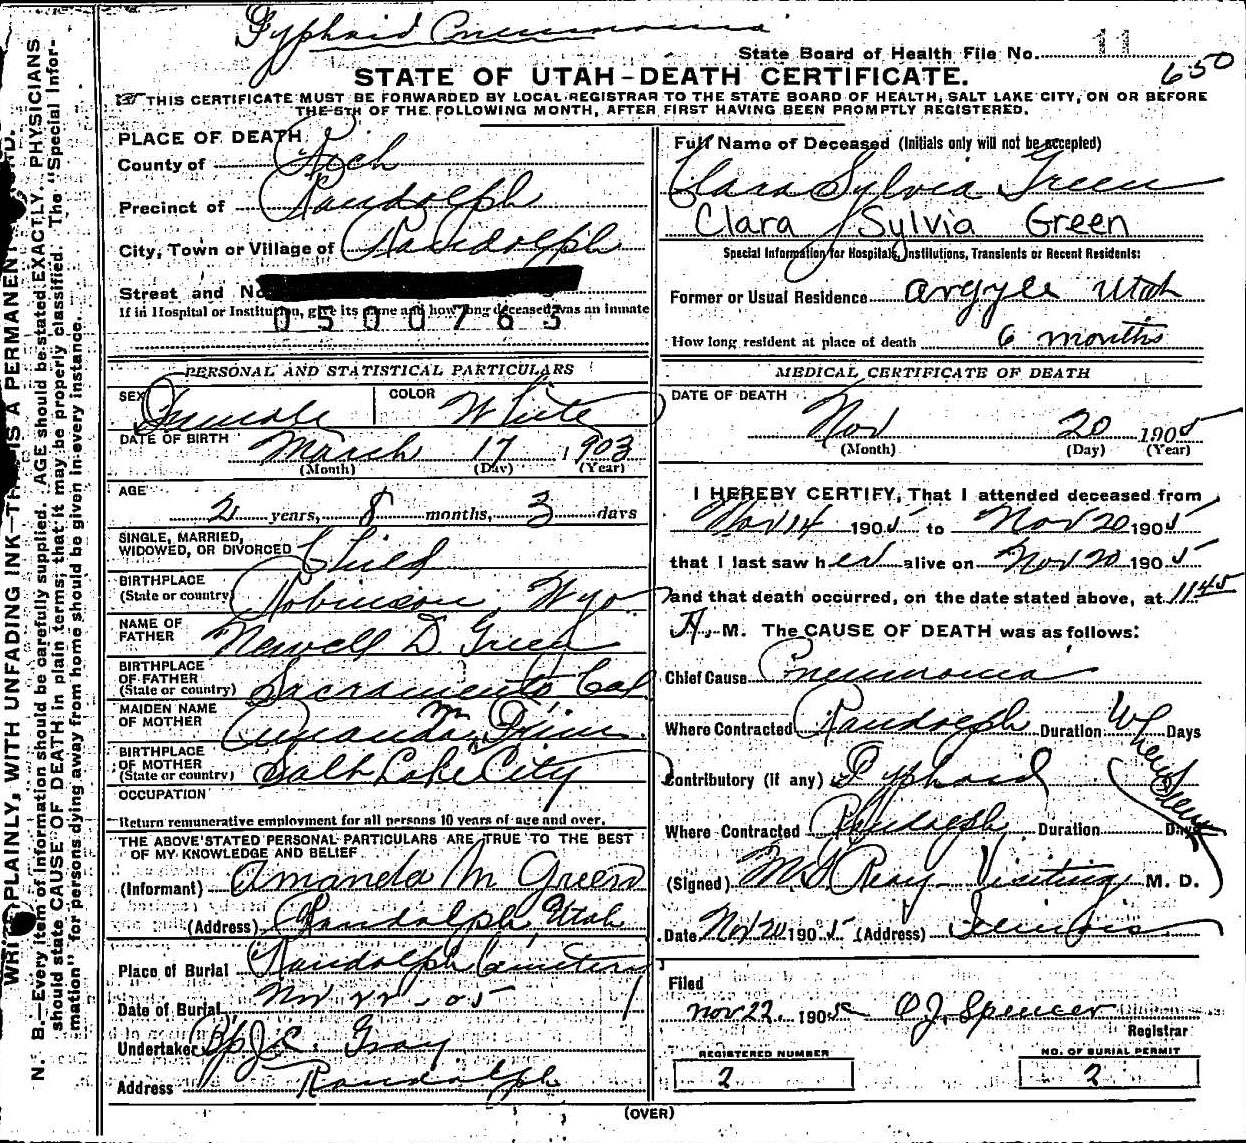 Typhoid Pneumonia
State Board of Health File No. 11
650
STATE OF UTAH-DEATH CERTIFICATE.
THIS CERTIFICATE MUST BE FORWARDED BY LOCAL REGISTRAR TO THE STATE BOARD OF HEALTH, SALT LAKE CITY, ON OR BEFORE
THE 5TH OF THE FOLLOWING MONTH, AFTER FIRST HAVING BEEN PROMPTLY REGISTERED.
PLACE OF DEATH
County of Rich
Precinct of Randolph
City, Town or Village of Randolph
Street and No
If in Hospital or Institution, give its name and how long deceased was an inmate
0500763
Full Name of Deceased (Initials only will not be accepted)
Clara Sylvia Green
Clara Sylvia Green
Special Information for Hospitals, Institutions, Transients or Recent Residents:
Former or Usual Residence Argyle Utah
How long resident at place of death 6 months
PERSONAL AND STATISTICAL PARTICULARS
SEX Female COLOR White
DATE OF BIRTH March 17 1903
(Month) (Day) (Year)
AGE
2 years, 8 months, 3 days
SINGLE, MARRIED,
WIDOWED, OR DIVORCED Child
BIRTHPLACE
(State or country) Robinson, Wyo
NAME OF
FATHER Newell D. Green
BIRTHPLACE
OF FATHER
(State or country) Sacramento, Cal
MAIDEN NAME
OF MOTHER Amanda M
BIRTHPLACE
OF MOTHER
(State or country) Salt Lake City
OCCUPATION
Return remunerative employment for all persons 10 years of age and over.
THE ABOVE STATED PERSONAL PARTICULARS ARE TRUE TO THE BEST
OF MY KNOWLEDGE AND BELIEF
(Informant) Amanda M Green
(Address) Randolph, Utah
Place of Burial Randolph Cemetery
Date of Burial Nov 22 - 05
Undertaker Bp J.C. Gray
Address Randolph
MEDICAL CERTIFICATE OF DEATH
DATE OF DEATH
Nov 20 1905
(Month) (Day) (Year)
I HEREBY CERTIFY, That I attended deceased from
Nov 14 1905 to Nov 20 1905
that I last saw her alive on Nov 20 1905
and that death occurred, on the date stated above, at 1145
A. M. The CAUSE OF DEATH was as follows:
Chief Cause Pneumonia
Where Contracted Randolph Duration Days
Contributory (if any) Typhoid
Where Contracted Randolph Duration Days
(Signed) Visiting M. D.
Date Nov 20 1905 (Address)
Filed
Nov 22. 190 O.J. Spencer
Registrar
REGISTERED NUMBER
2
NO. OF BURIAL PERMIT
2
(OVER)
N. B.—Every item of information should be carefully supplied. AGE should be stated EXACTLY. PHYSICIANS
should state CAUSE OF DEATH in plain terms, that it may be properly classified. The "Special Infor-
mation" for persons dying away from home should be given in every instance.
PLAINLY, WITH UNFADING INK—THIS IS A PERMANENT